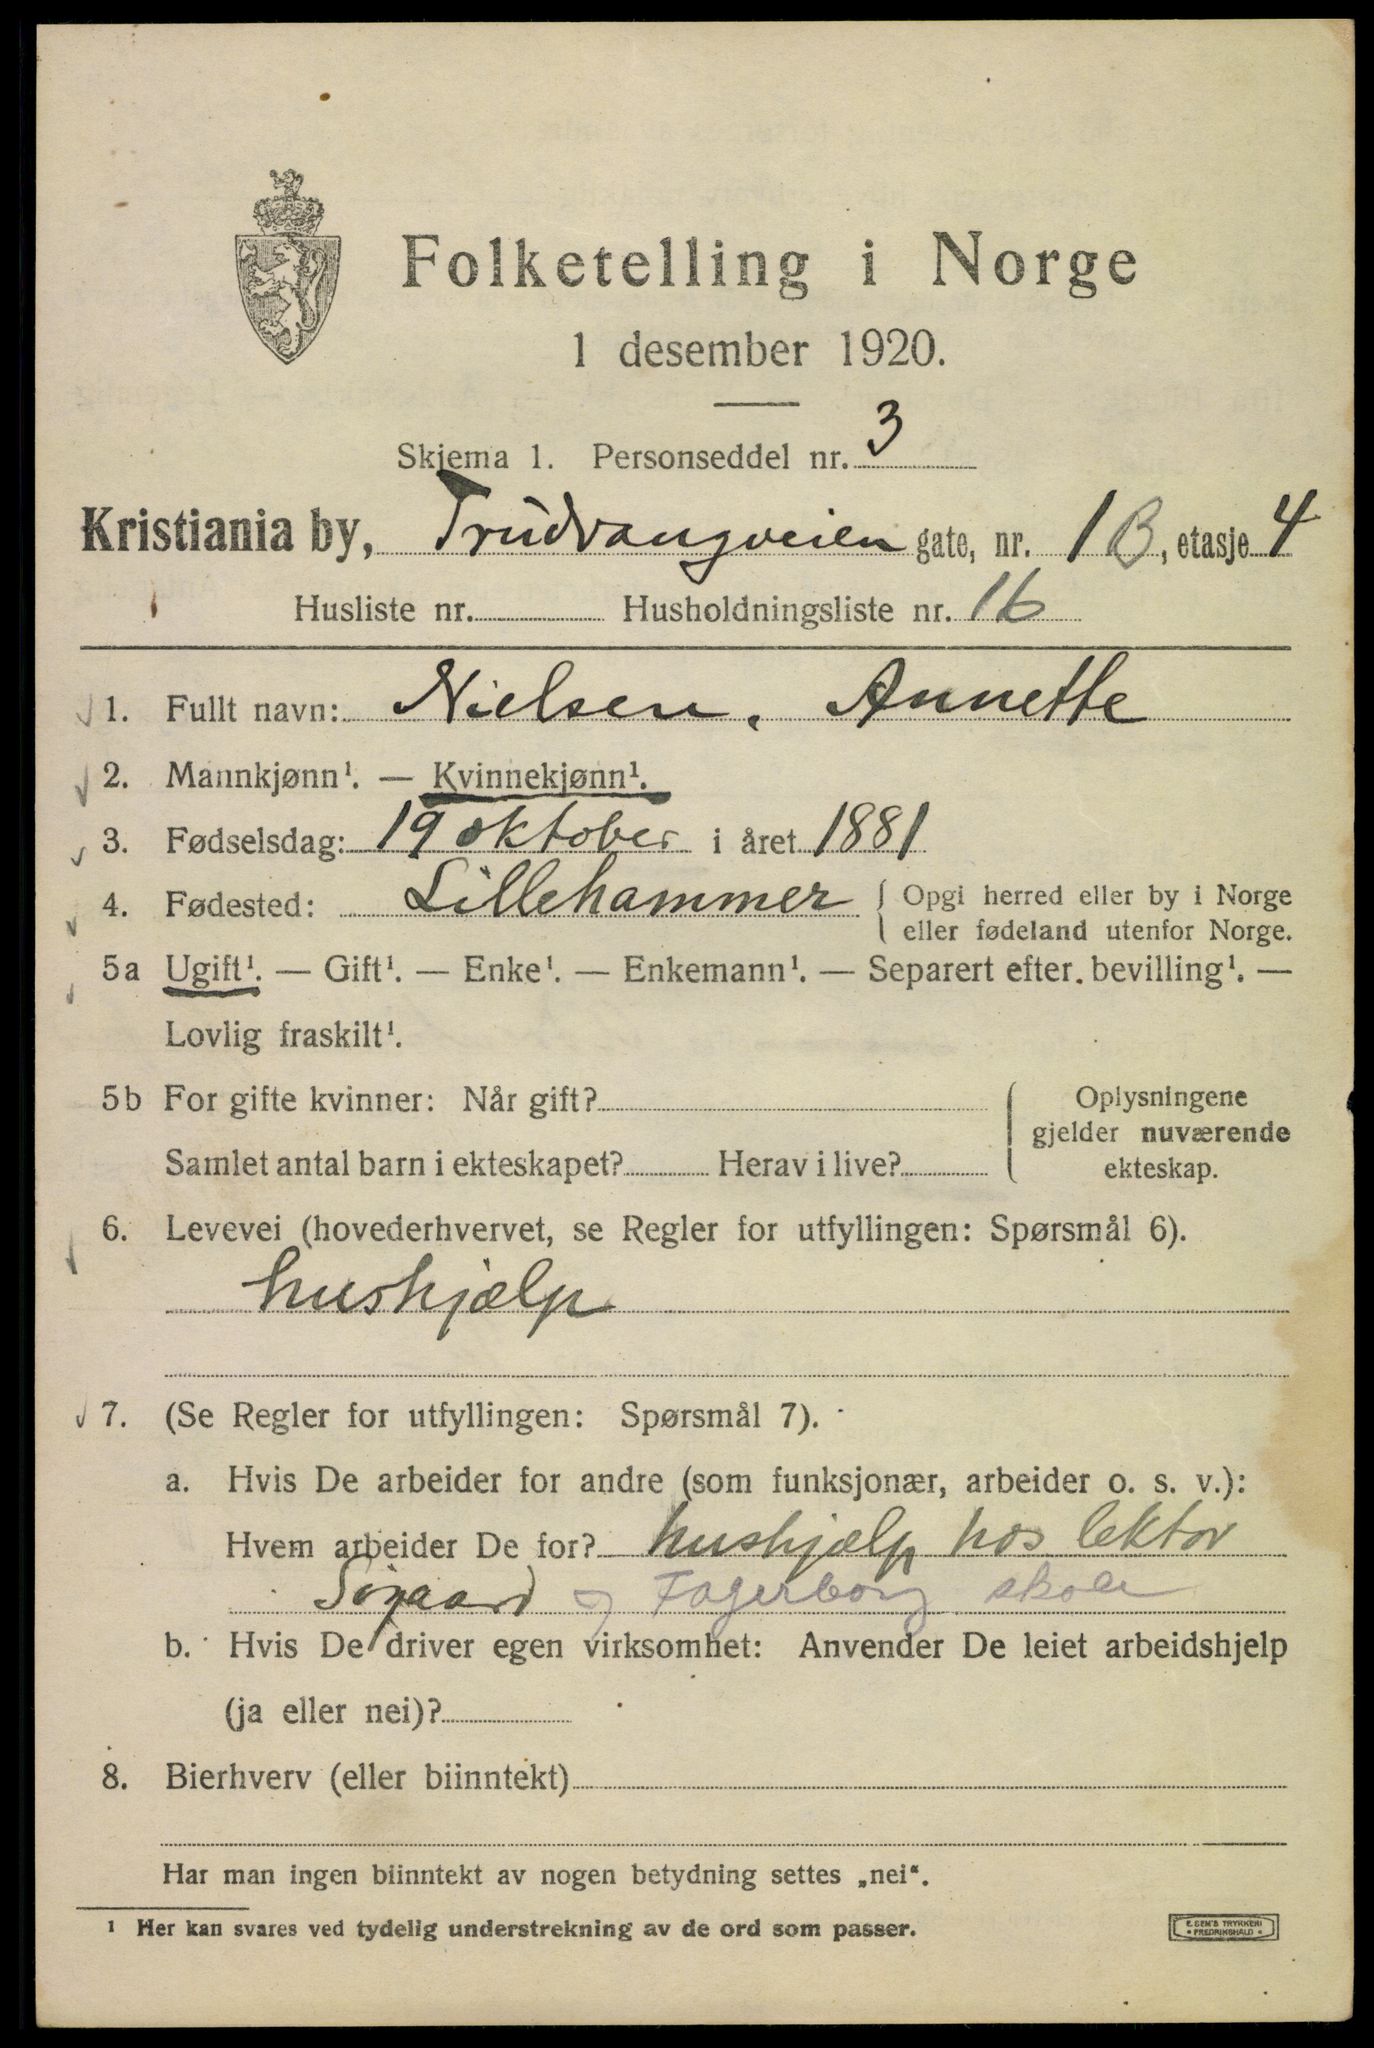 Folketelling i Norge
1 desember 1920.
Skjema 1. Personseddel nr. 3
Kristiania by, Trudvangveien gate, nr. 1 B, etasje 4
Husliste nr. Husholdningsliste nr. 16
1. Fullt navn: Nielsen, Annette
2. Mannkjønn¹. — Kvinnekjønn¹.
3. Fødselsdag: 19 oktober i året 1881
4. Fødested: Lillehammer { Opgi herred eller by i Norge
eller fødeland utenfor Norge.
5a Ugift¹. — Gift¹. — Enke¹. — Enkemann¹. — Separert efter bevilling¹. —
Lovlig fraskilt¹.
5b For gifte kvinner: Når gift? { Oplysningene
gjelder nuværende
Samlet antal barn i ekteskapet? Herav i live? ekteskap.
6. Levevei (hovederhvervet, se Regler for utfyllingen: Spørsmål 6).
hushjælp
7. (Se Regler for utfyllingen: Spørsmål 7).
a. Hvis De arbeider for andre (som funksjonær, arbeider o. s. v.):
Hvem arbeider De for? hushjælp hos lektor
Søgaard og Fagerborg skole
b. Hvis De driver egen virksomhet: Anvender De leiet arbeidshjelp
(ja eller nei)?
8. Bierhverv (eller biinntekt)
Har man ingen biinntekt av nogen betydning settes „nei“.
¹ Her kan svares ved tydelig understrekning av de ord som passer.
E. SEM'S TRYKKERI
FREDRIKSHALD